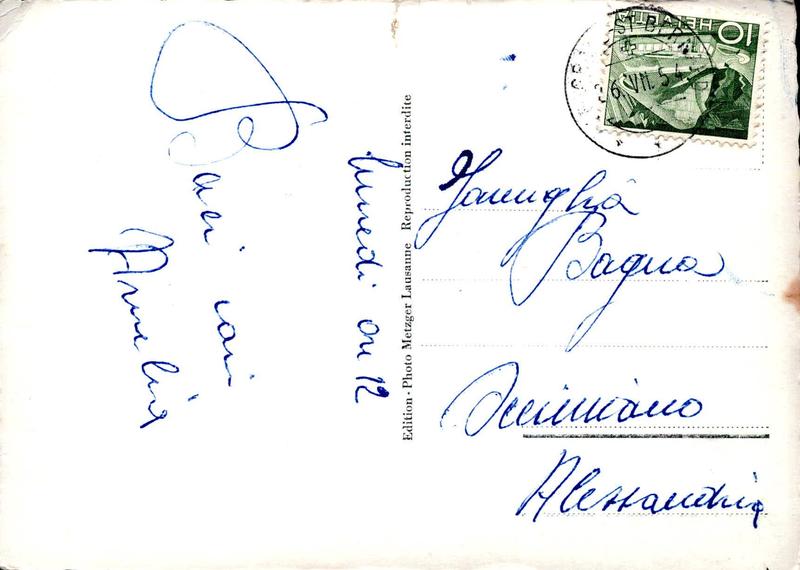 Baci cari
Amelia
lunedì ore 12
Edition - Photo Metzger Lausanne Reproduction interdite
HELVETIA
10
ST-BERNARD
6.VII.54
Famiglia
Bagna
Occimiano
Alessandria